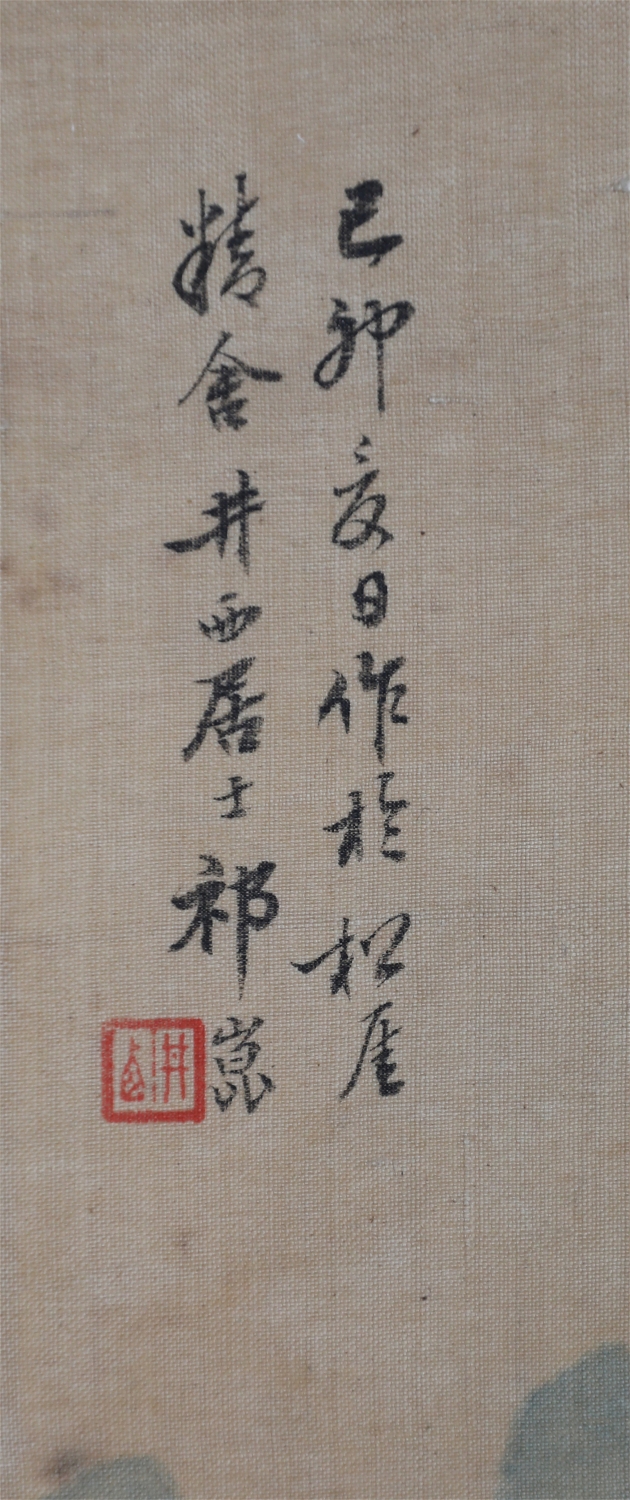 己卯夏日作於松厓
精舍井西居士祁崑
井西